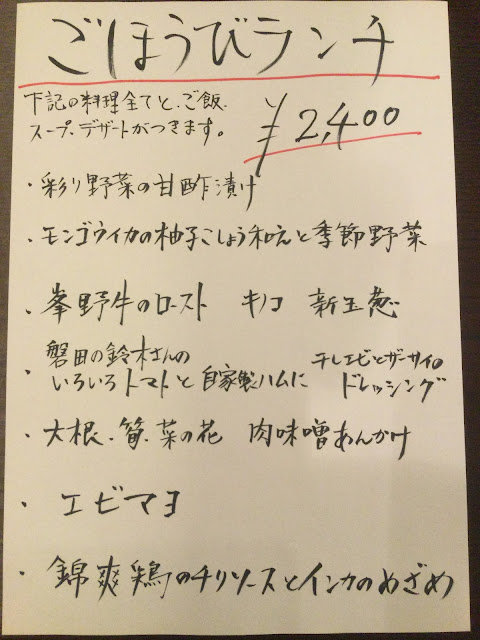 ごほうびランチ
下記の料理全てと、ご飯、
スープ、デザートがつきます。
¥2,400
・彩り野菜の甘酢漬け
・モンゴウイカの柚子こしょう和えと季節野菜
・峯野牛のロースト キノコ 新玉葱
・磐田の鈴木さんの
いろいろトマトと自家製ハムに 干しエビとザーサイの
ドレッシング
・大根、筍、菜の花 肉味噌あんかけ
・エビマヨ
・錦爽鶏のチリソースとインカのめざめ